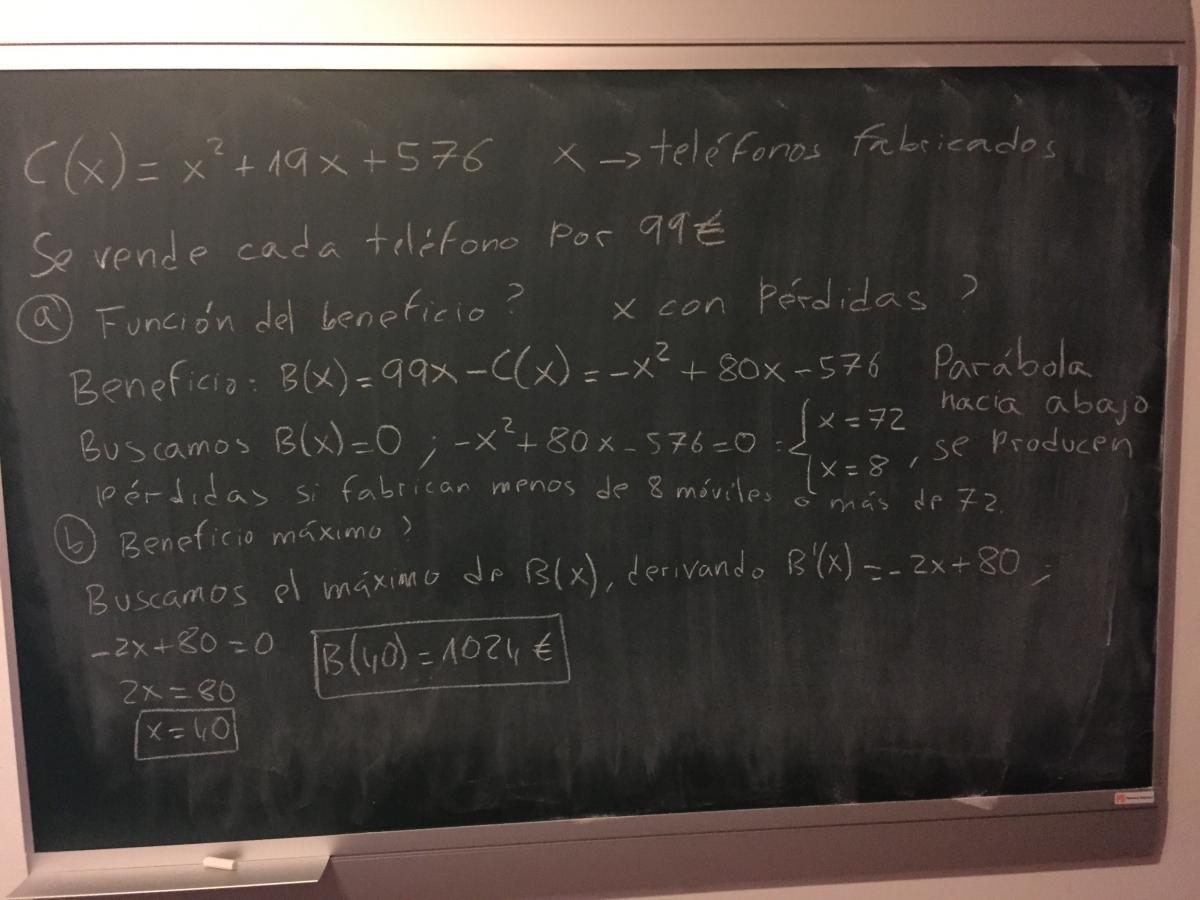 C(x) = x² + 19x + 576 x → teléfonos fabricados
Se vende cada teléfono por 99€
a Función del beneficio? x con pérdidas?
Beneficio: B(x) = 99x - C(x) = -x² + 80x - 576 Parábola
hacia abajo
Buscamos B(x) = 0 ; -x² + 80x - 576 = 0 : { x = 72
x = 8 , se producen
pérdidas si fabrican menos de 8 móviles o más de 72.
b Beneficio máximo?
Buscamos el máximo de B(x), derivando B'(x) = -2x + 80 ;
-2x + 80 = 0 B(40) = 1024 €
2x = 80
x = 40